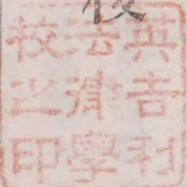 英吉利
法律學
校之印